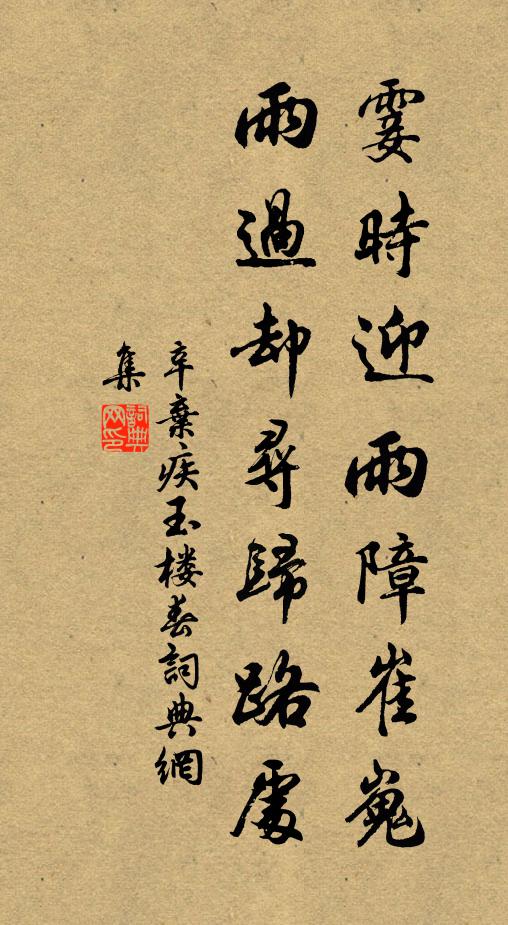 霎時迎雨障崔嵬
雨過却尋歸路處
辛棄疾玉楼春詞典網
集
詞典网印